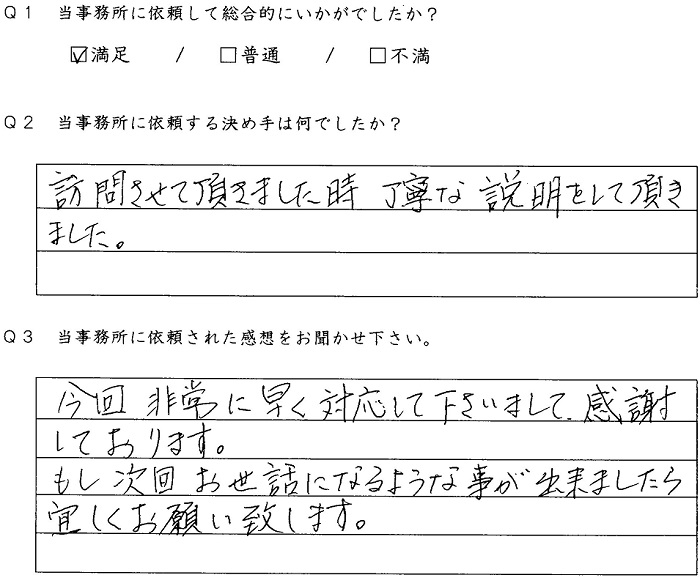 Q1 当事務所に依頼して総合的にいかがでしたか?
☑満足 / □普通 / □不満
Q2 当事務所に依頼する決め手は何でしたか?
訪問させて頂きました時 丁寧な 説明をして頂き
ました。
Q3 当事務所に依頼された感想をお聞かせ下さい。
今回 非常に早く対応して下さいまして、感謝
しております。
もし次回 お世話になるような事が出来ましたら
宜しくお願い致します。